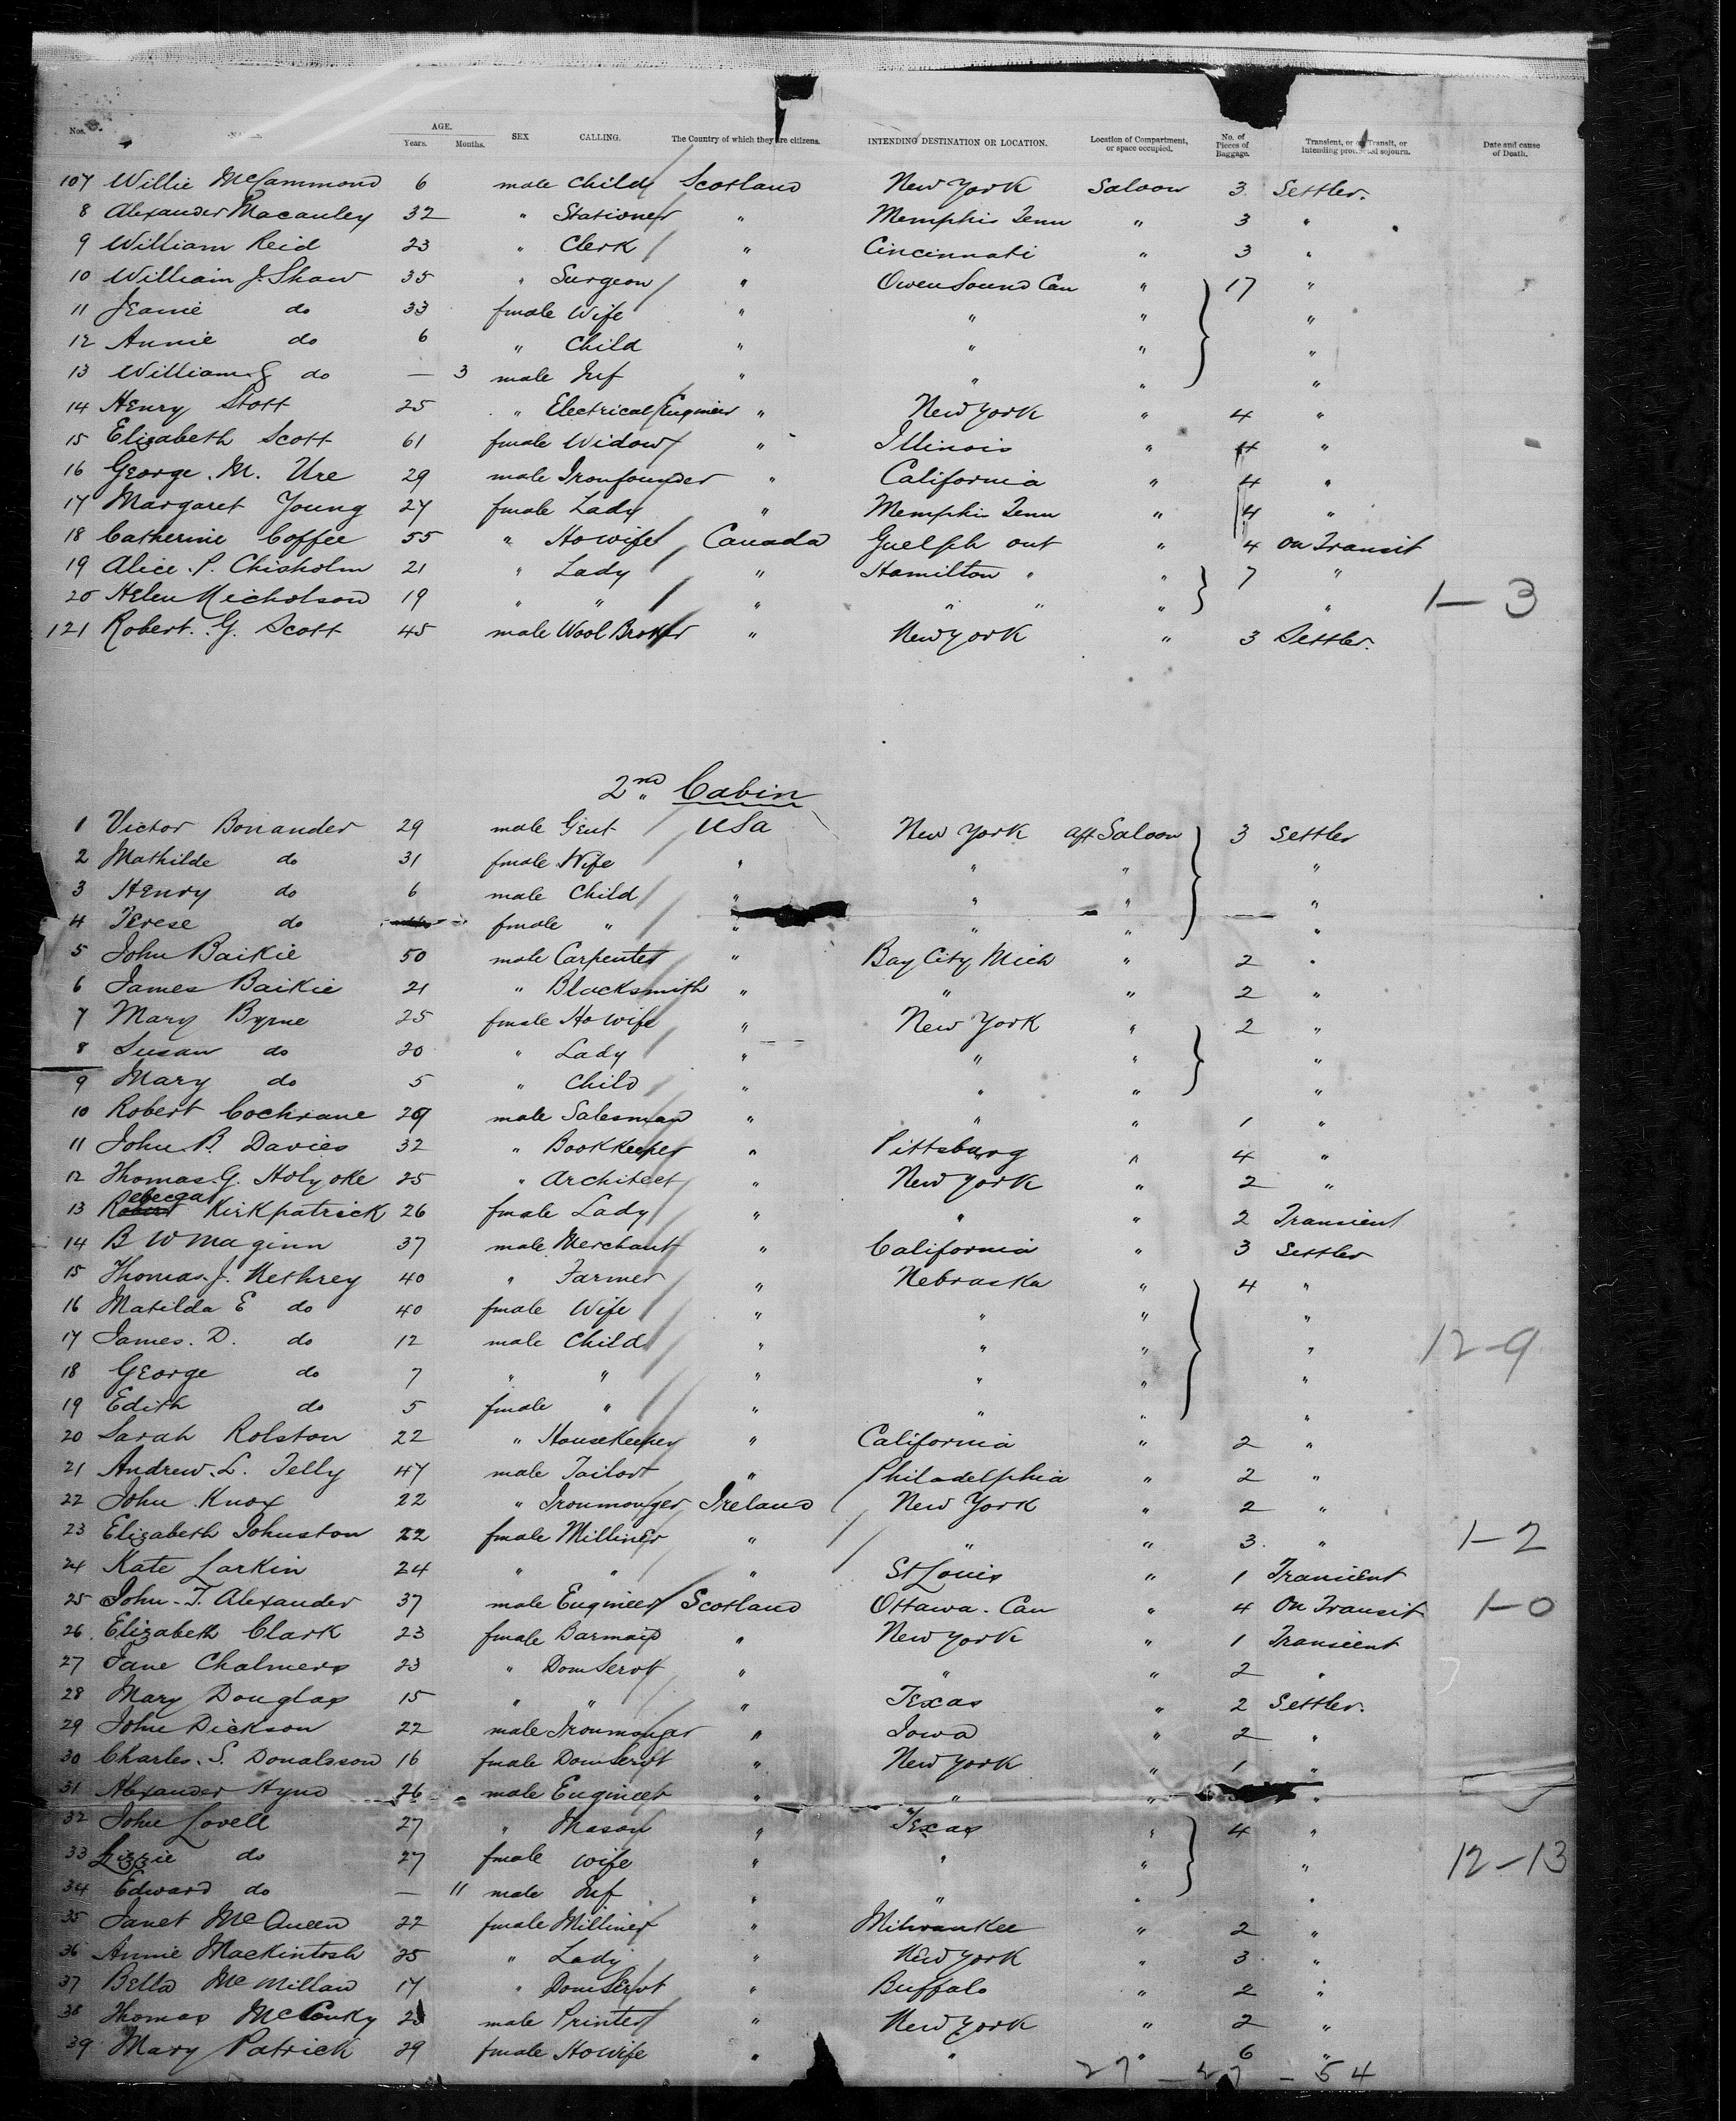 Nos. AGE. SEX CALLING. The Country of which they are citizens. INTENDING DESTINATION OR LOCATION. Location of Compartment, or space occupied. No. of Pieces of Baggage. Transient, or in Transit, or intending protracted sojourn. Date and cause of Death.
Years. Months.
107 Willie McCammond 6 male Child Scotland New York Saloon 3 Settler.
8 Alexander Macauley 32 " Stationer " Memphis Tenn " 3 "
9 William Reid 23 " Clerk " Cincinnati " 3 "
10 William J. Shaw 35 " Surgeon " Owen Sound Can " 17 "
11 Jeanie do 33 fmale Wife " " " "
12 Annie do 6 " Child " " " "
13 William G do — 3 male Inf " " " "
14 Henry Stott 25 " Electrical Engineer " New York " 4 "
15 Elizabeth Scott 61 fmale Widow " Illinois " 4 "
16 George. M. Ure 29 male Ironfounder " California " 4 "
17 Margaret Young 27 fmale Lady " Memphis Tenn " 4 "
18 Catherine Coffee 55 " Howife Canada Guelph ont " 4 On Transit
19 Alice. P. Chisholm 21 " Lady " Hamilton " " 7 "
20 Helen Nicholson 19 " " " " " " " 1-3
121 Robert. G. Scott 45 male Wool Broker " New York " 3 Settler.
2nd Cabin
1 Victor Bonander 29 male Gent USA New York aft Saloon 3 Settler
2 Mathilde do 31 fmale Wife " " " "
3 Henry do 6 male Child " " " "
4 Terese do fmale " " " " "
5 John Baikie 50 male Carpenter " Bay City Mich " 2 "
6 James Baikie 21 " Blacksmith " " " 2 "
7 Mary Byrne 25 fmale Howife " New York " 2 "
8 Susan do 20 " Lady " " " "
9 Mary do 5 " Child " " " "
10 Robert Cochrane 29 male Salesman " " " 1 "
11 John. B. Davies 32 " Bookkeeper " Pittsburg " 4 "
12 Thomas. G. Holyoke 25 " Architect " New York " 2 "
13 Rebecca Kirkpatrick 26 fmale Lady " " " 2 Transient
14 B W Maginn 37 male Merchant " California " 3 Settler
15 Thomas. J. Nethrey 40 " Farmer " Nebraska " 4 "
16 Matilda E do 40 fmale Wife " " " "
17 James. D. do 12 male Child " " " " 12-9
18 George do 7 " " " " " "
19 Edith do 5 fmale " " " " "
20 Sarah Rolston 22 " Housekeeper " California " 2 "
21 Andrew. L. Telly 47 male Tailor " Philadelphia " 2 "
22 John Knox 22 " Ironmonger Ireland New York " 2 "
23 Elizabeth Johnston 22 fmale Milliner " " " 3 " 1-2
24 Kate Larkin 24 " " " St Louis " 1 Transient
25 John. T. Alexander 37 male Engineer Scotland Ottawa. Can " 4 On Transit 1-0
26 Elizabeth Clark 23 fmale Barmaid " New York " 1 Transient
27 Jane Chalmers 23 " Dom Servt " " " 2 "
28 Mary Douglas 15 " " " Texas " 2 Settler.
29 John Dickson 22 male Ironmonger " Iowa " 2 "
30 Charles. S. Donaldson 16 fmale Dom Servt " New York " 1 "
31 Alexander Hynd 26 male Engineer " " " "
32 John Lovell 27 " Mason " Texas " 4 "
33 Lizzie do 27 fmale wife " " " " 12-13
34 Edward do — 11 male Inf " " " "
35 Janet McQueen 22 fmale Milliner " Milwaukee " 2 "
36 Annie Mackintosh 25 " Lady " New York " 3 "
37 Bella McMillan 17 " Dom Servt " Buffalo " 2 "
38 Thomas McConky male Printer " New York " 2 "
39 Mary Patrick 29 fmale Howife " " " 6 "
27 - 27 - 54